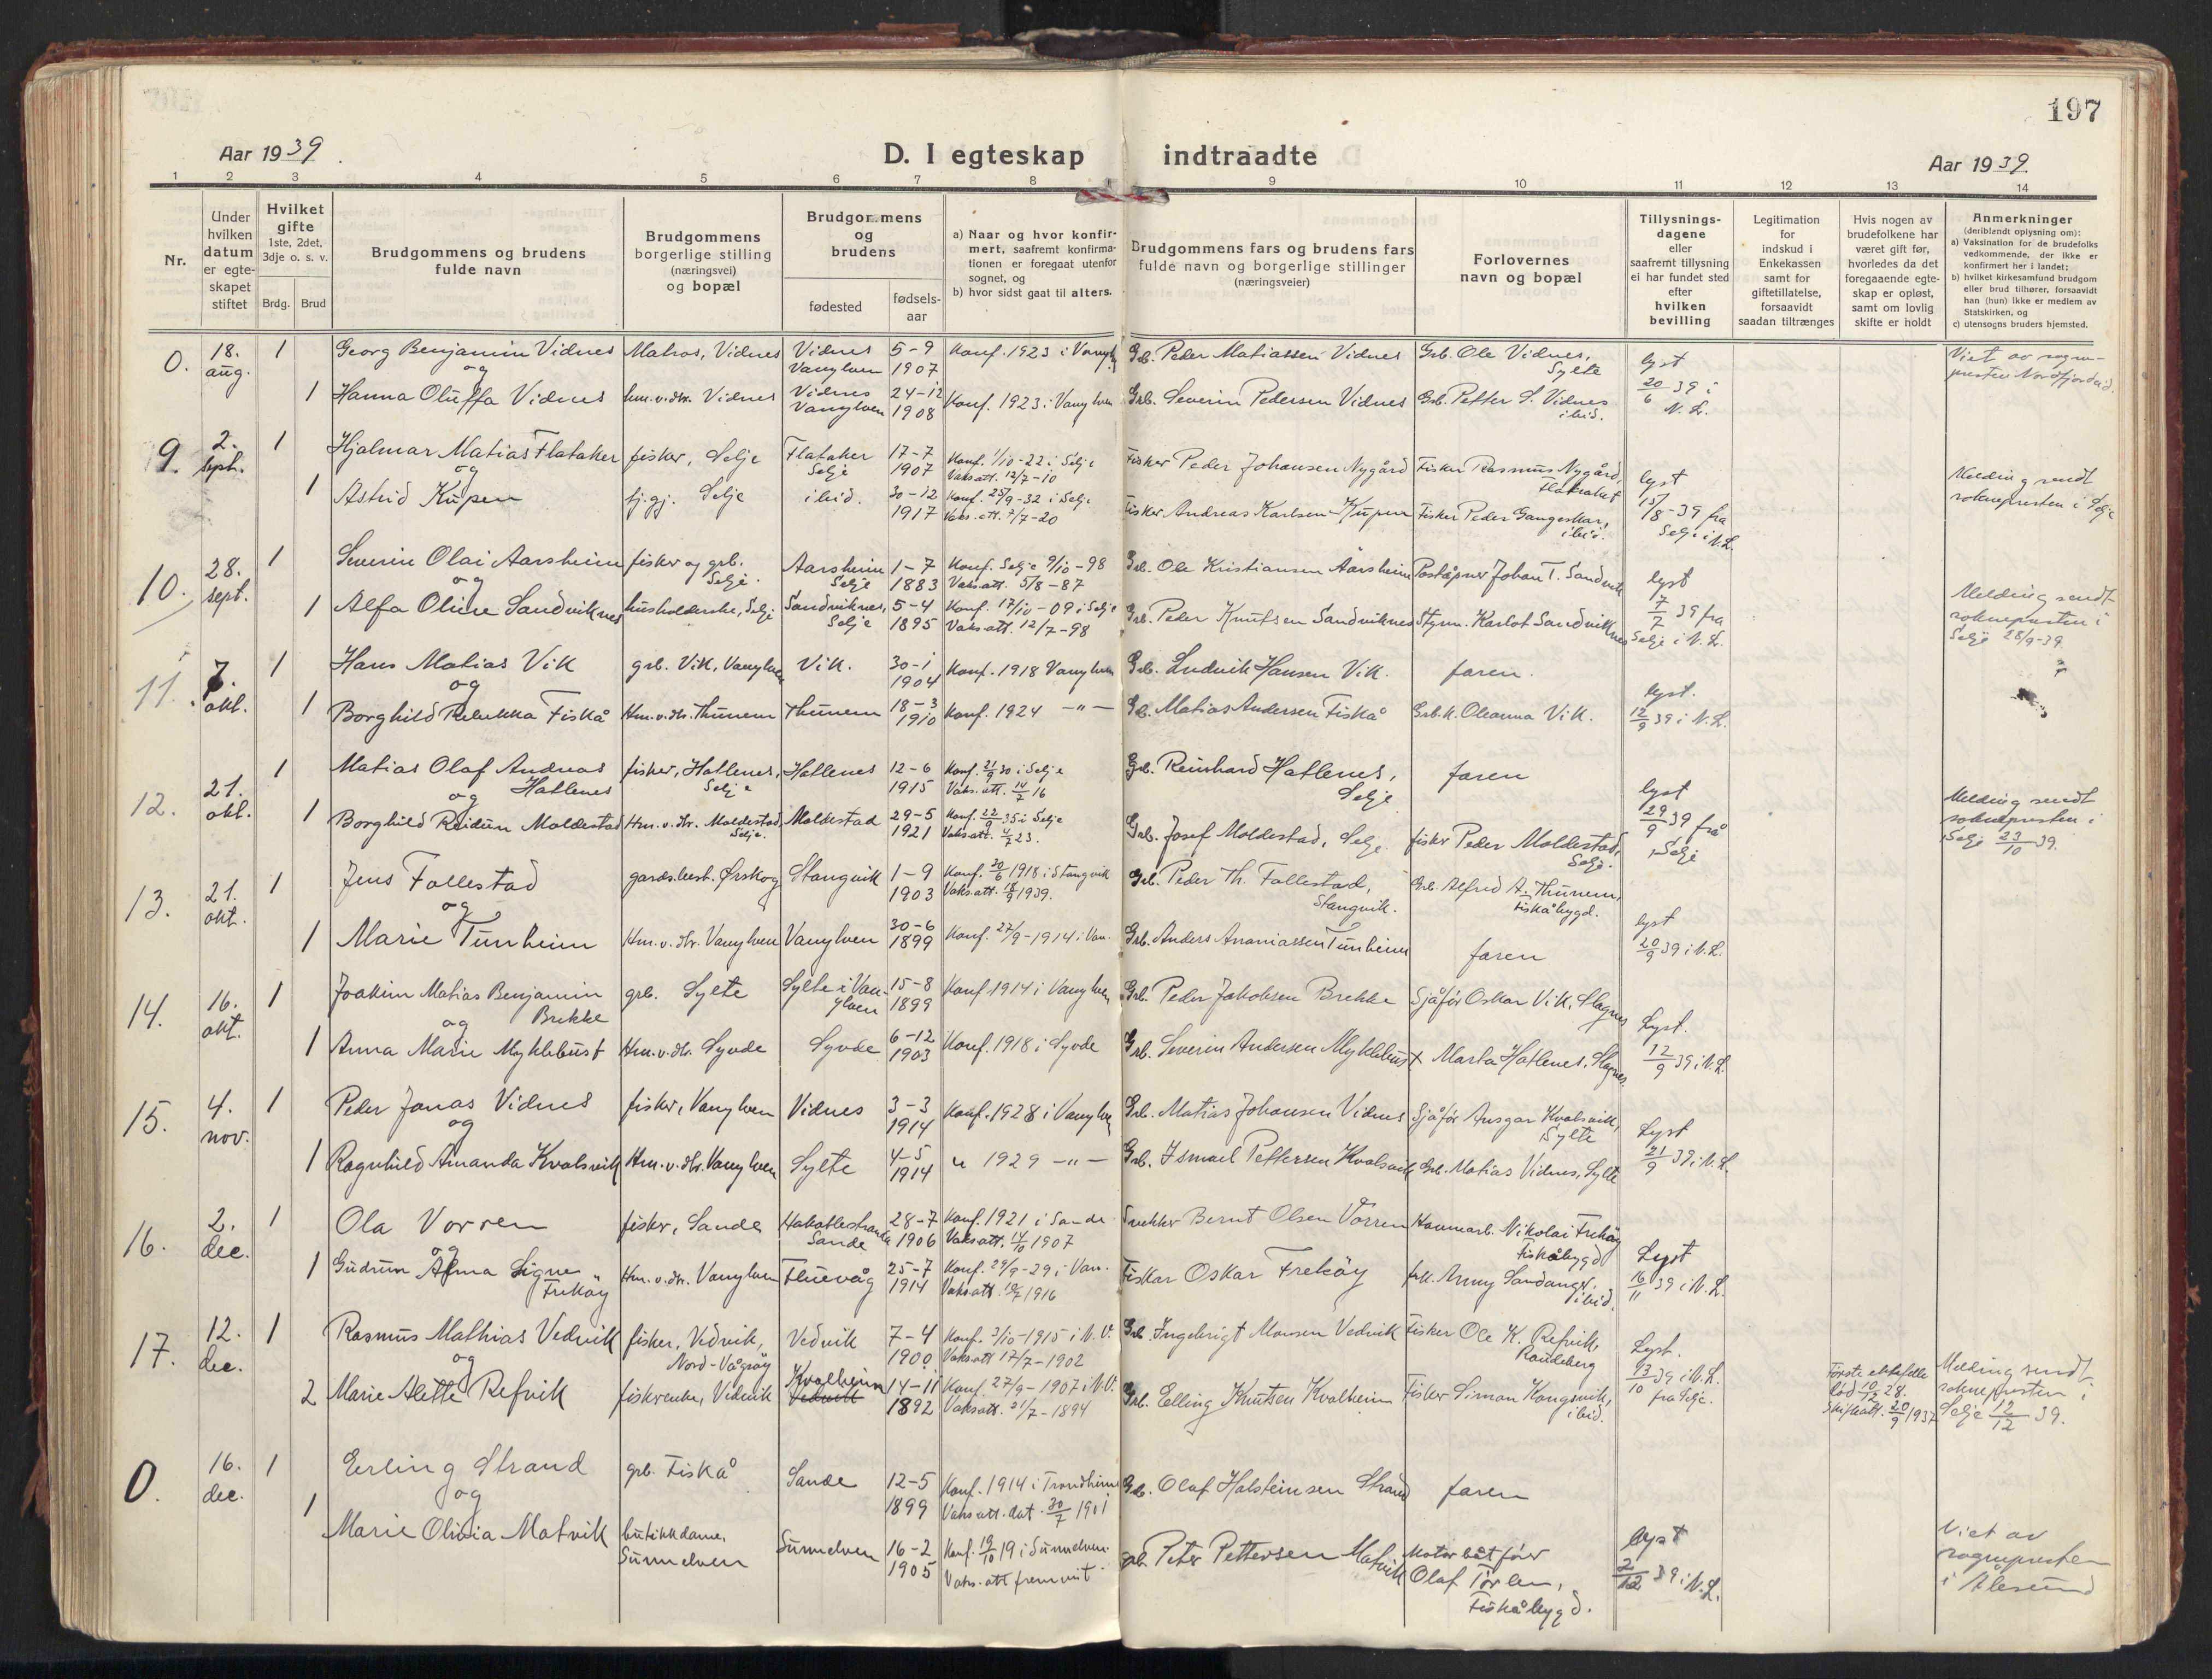 197
Aar 1939.
D. I egteskap indtraadte
Aar 1939.
1 2 3 4 5 6 7 8 9 10 11 12 13 14
Nr.
Under hvilken datum er egte-skapet stiftet
Hvilket gifte 1ste, 2det, 3dje o. s. v.
Brdg. Brud
Brudgommens og brudens fulde navn
Brudgommens borgerlige stilling (næringsvei) og bopæl
Brudgommens og brudens
fødested
fødsels-aar
a) Naar og hvor konfir-mert, saafremt konfirma-tionen er foregaat utenfor sognet, og
b) hvor sidst gaat til alters.
Brudgommens fars og brudens fars fulde navn og borgerlige stillinger (næringsveier)
Forlovernes navn og bopæl
Tillysnings-dagene eller saafremt tillysning ei har fundet sted efter hvilken bevilling
Legitimation for indskud i Enkekassen samt for giftetillatelse, forsaavidt saadan tiltrænges
Hvis nogen av brudefolkene har været gift før, hvorledes da det foregaaende egte-skap er opløst, samt om lovlig skifte er holdt
Anmerkninger (deriblendt oplysning om):
a) Vaksination for de brudefolks vedkommende, der ikke er konfirmert her i landet;
b) hvilket kirkesamfund brudgom eller brud tilhører, forsaavidt han (hun) ikke er medlem av Statskirken, og
c) utensogns bruders hjemsted.
0. 18. aug. 1 Georg Benjamin Vidnes Matros, Vidnes Vidnes Vanylven 5-9 1907 Konf. 1923 i Vanylv. Grb. Peder Matiassen Vidnes Grb. Ole Vidnes, Sylte lyst 20/6 39 i N.L. Viet av sogne-presten Nordfjordeid.
og
1 Hanna Oluffa Vidnes hm.v.dtr. Vidnes Vidnes Vanylven 24-12 1908 Konf. 1923 i Vanylven Grb. Severin Pedersen Vidnes Grb. Petter S. Vidnes ibid.
9. 2. sept. 1 Hjalmar Matias Flataker fisker, Selje Flataker Selje 17-7 1907 Konf. 1/10-22 i Selje Vaks.att. 12/7-10 Fisker Peder Johansen Nygård Fisker Rasmus Nygård, Flataker lyst 15/8-39 fra Selje i N.L. Melding sendt soknepresten i Selje
og
1 Astrid Kupen fj.gj. Selje ibid. 30-12 1917 Konf. 25/9-32 i Selje Vaks.att. 7/7-20 Fisker Andreas Karlsen Kupen Fisker Peder Gangeskar, ibid.
10. 28. sept. 1 Severin Olai Aarsheim fisker og grb. Selje. Aarsheim Selje 1-7 1883 Konf. Selje 9/10-98 Vaks.att. 5/8-87 Grb. Ole Kristiansen Aarsheim Poståpner Johan T. Sandvik lyst 7/7 39 fra Selje i N.L. Melding sendt soknepresten i Selje 28/9-39
og
1 Alfa Oline Sandviknes husholderske, Selje Sandviknes, Selje 5-4 1895 Konf. 17/10-09 i Selje Vaks.att. 12/7-98 Grb. Peder Knutsen Sandviknes Styrm. Karlot Sandviknes
11. 7. okt. 1 Hans Matias Vik grb. Vik, Vanylven Vik. 30-1 1904 Konf. 1918 Vanylven Grb. Ludvik Hansen Vik. faren. lyst. 12/9 39 i N.L.
og
1 Borghild Rebekka Fiskå Hm.v.dtr. Thunem Thunem 18-3 1910 Konf. 1924 -"- Grb. Matias Andersen Fiskå Grb.k. Oleanna Vik.
12. 21. okt. 1 Matias Olaf Andreas Hatlenes fisker, Hatlenes, Selje Hatlenes 12-6 1915 Konf. 21/9 30 i Selje Vaks.att. 14/7 16 Grb. Reinhard Hatlenes, Selje faren lyst 29/9 39 frå Selje Melding sendt soknepresten i Selje 23/10 39.
og
1 Borghild Reidun Moldestad Hm.v.dtr. Moldestad, Selje. Moldestad 29-5 1921 Konf. 22/9 35 i Selje Vaks.att. 23. Grb. Josef Moldestad, Selje fisker Peder Moldestad, Selje.
13. 21. okt. 1 Jens Follestad gards.best. Ørskog Stangvik 1-9 1903 Konf. 30/6 1918 i Stangvik Vaks.att. 18/9 1939. Grb. Peder Th. Follestad, Stangvik. Grb. Alfred A. Thunem, Fiskåbygd. lyst 20/9 39 i N.L.
og
1 Marie Tunheim Hm.v.dtr. Vanylven Vanylven 30-6 1899 Konf. 27/9-1914 i Van. Grb. Anders Ananiassen Tunheim faren
14. 16. okt. 1 Joakim Matias Benjamin Brekke grb. Sylte Sylte i Van-ylven 15-8 1899 Konf. 1914 i Vanylven Grb. Peder Jakobsen Brekke Sjåfør Oskar Vik, Slagnes Lyst. 12/9 39 i N.L.
og
1 Anna Marie Myklebust Hm.v.dtr. Syvde Syvde 6-12 1903 Konf. 1918 i Syvde Grb. Severin Andersen Myklebust Marta Hatlenes, Slagnes
15. 4. nov. 1 Peder Jonas Vidnes fisker, Vanylven Vidnes 3-3 1914 Konf. 1928 i Vanylven Grb. Matias Johansen Vidnes Sjåfør Ansgar Kvalsvik, Sylte Lyst 21/9 39 i N.L.
og
1 Ragnhild Amanda Kvalsvik Hm.v.dtr. Vanylven Sylte 4-5 1914 " 1929 -"- Grb. Ismael Pettersen Kvalsvik Grb. Matias Vidnes, Sylte
16. 2. dec. 1 Ola Vorren fisker, Sande Hakallestranda Sande 28-7 1906 Konf. 1921 i Sande Vaks.att. 14/10 1907 Snekker Bernt Olsen Vorren Havnearb. Nikolai Frekøy Fiskåbygd Lyst 16/11 39 i N.L.
og
1 Gudrun Alma Signe Frekøy Hm.v.dtr. Vanylven Fluevåg 25-7 1914 Konf. 29/9-29 i Van. Vaks.att. 1916 Fiskar Oskar Frekøy frk. Anny Sandanger, ibid.
17. 12. dec. 1 Rasmus Mathias Vedvik fisker, Vedvik, Nord-Vågsøy Vedvik 7-4 1900 Konf. 3/10-1915 i N.V. Vaks.att 17/7-1902 Grb. Ingebrigt Monsen Vedvik Fisker Ole K. Refvik Raudeberg Lyst. 13/10 39 i N.L. fra Selje. Første ektefelle død 10/12 28. Skifteatt. 20/9 1937 Melding sendt soknepresten i Selje 12/12 39.
og
2 Marie Alette Refvik fiskerenke, Vedvik Kvalheim Vedvik 14-11 1892 Konf. 27/9-1907 i N.V. Vaks.att. 21/7-1894 Grb. Elling Knutsen Kvalheim Fisker Simon Kongsvik, ibid.
0. 16. dec. 1 Erling Strand grb. Fiskå Sande 12-5 1899 Konf. 1914 i Trondheim Vaks.att. dat. 30/7 1901 Grb. Olaf Halsteinsen Strand faren lyst 2/12 39 i N.L. Viet av sognepresten i Ålesund
og
1 Marie Olivia Matvik butikkdame, Sunnelven Sunnelven 16-2 1905 Konf. 19/10 19 i Sunnelven. Vaks.att fremvist grb. Peter Pettersen Matvik Motorbåtfører Olaf Tørlen, Fiskåbygd.